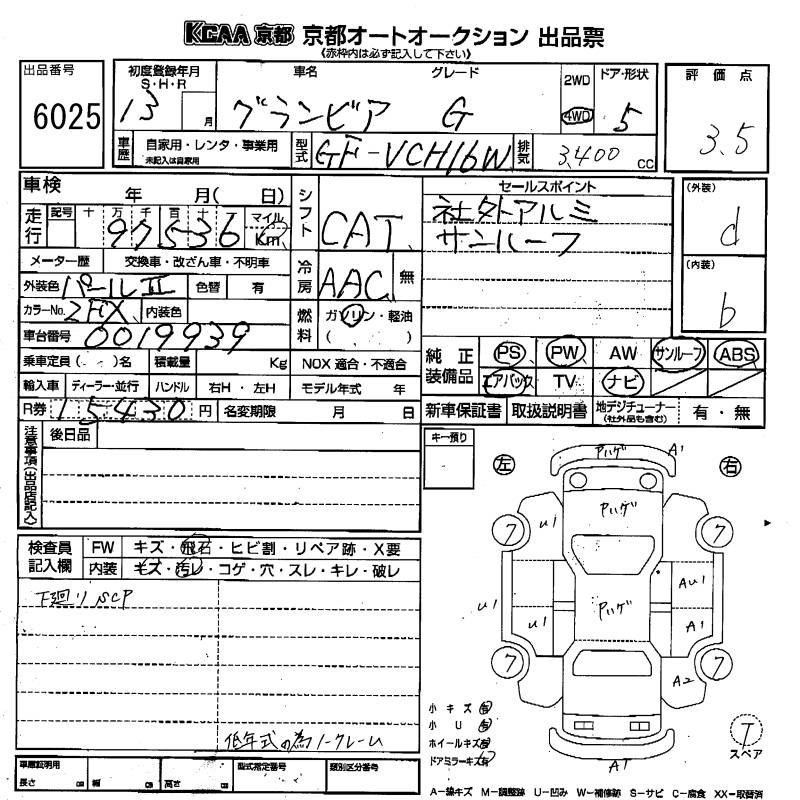 KCAA 京都 京都オートオークション 出品票
《赤枠内は必ず記入して下さい》
出品番号
6025
初度登録年月
S・H・R
13
月
車名 グレード
グランビア G
2WD
4WD
ドア・形状
5
評価点
3.5
車歴
自家用・レンタ・事業用
未記入は自家用
型式
GF-VCH16W
排気
3,400 cc
車検 年 月( 日)
走行
記号 十 万 千 百 十 マイル
97536 km
メーター歴 交換車・改ざん車・不明車
外装色 パールⅡ 色替 有
カラーNo. 2EX 内装色
車台番号 0019939
乗車定員( ・ )名 積載量 Kg NOX 適合・不適合
輸入車 ディーラー・並行 ハンドル 右H・左H モデル年式 年
R券 15430 円 名変期限 月 日
シフト CAT
冷房 AAC 無
燃料 ガソリン・軽油
( )
セールスポイント
社外アルミ
サンルーフ
(外装)
d
(内装)
b
純正装備品
PS PW AW サンルーフ ABS
エアバック TV ナビ
新車保証書 取扱説明書 地デジチューナー(社外品も含む) 有・無
注意事項(出品店記入)
後日品
キー預り
左 右
検査員記入欄
FW キズ・飛石・ヒビ割・リペア跡・X要
内装 キズ・汚レ・コゲ・穴・スレ・キレ・破レ
下廻り SCP
低年式の為ノークレーム
ハゲ A1
7 U1 ハゲ 7
U1 U1 ハゲ AU1
A1
7 A2 7
A1
小キズ 有
小U 有
ホイールキズ 有
ドアミラーキズ 有
T
スペア
車庫証明用
長さ cm 幅 cm 高さ cm
型式指定番号
類別区分番号
A-線キズ M-調整跡 U-凹み W-補修跡 S-サビ C-腐食 XX-取替済